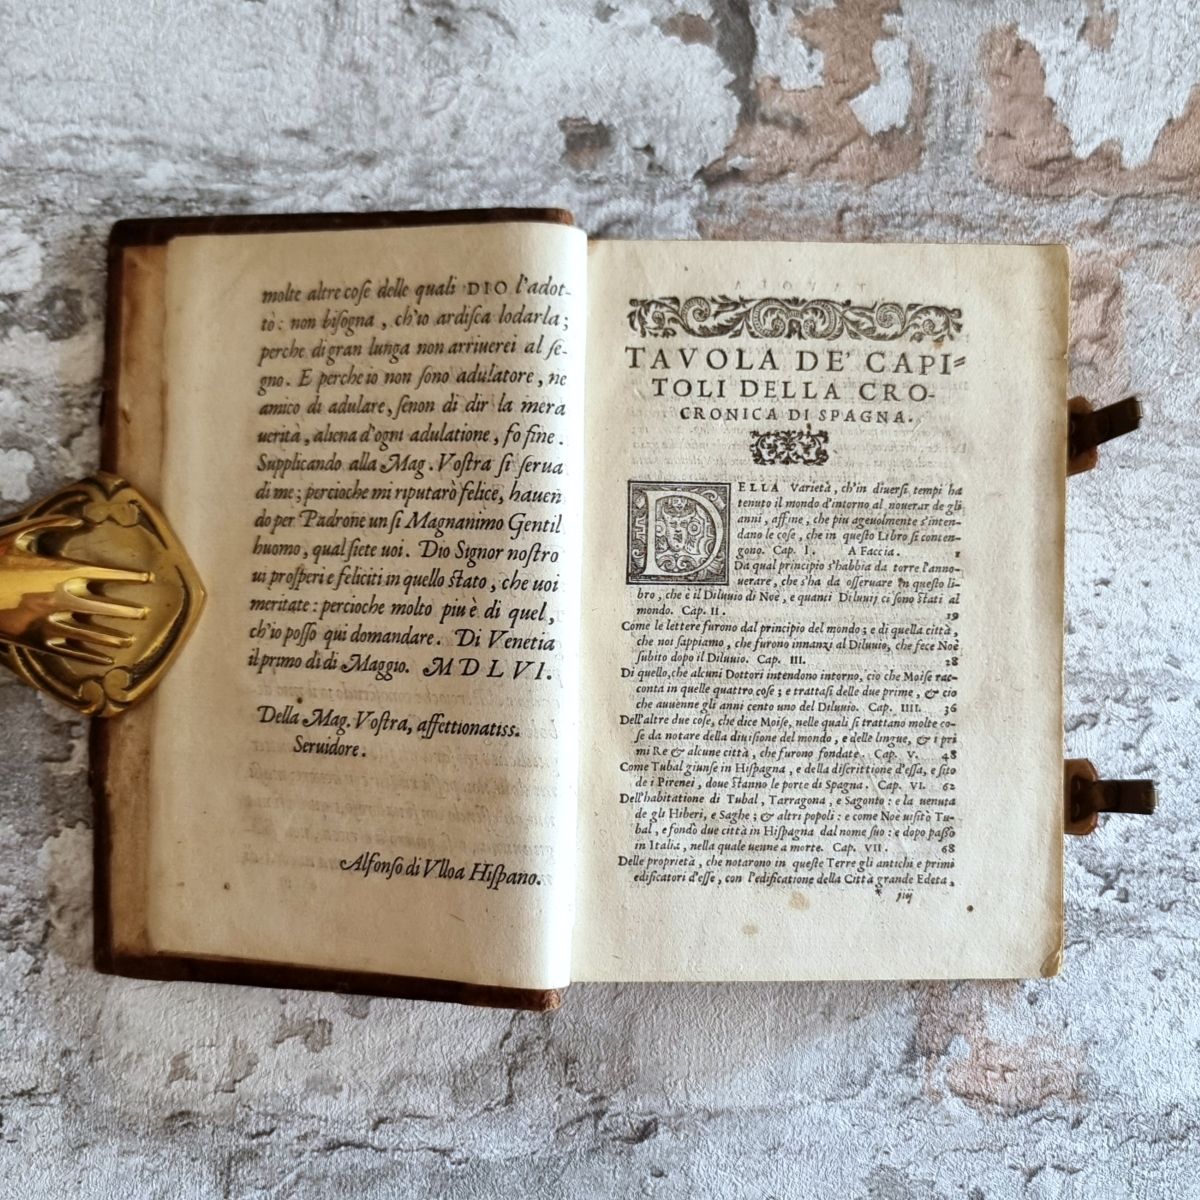 molte altre cose delle quali DIO l'adot-
tò: non bisogna, ch'io ardisca lodarla;
perche di gran lunga non arriuerei al se-
gno. E perche io non sono adulatore, ne
amico di adulare, senon di dir la mera
uerità, aliena d'ogni adulatione, fo fine.
Supplicando alla Mag. Vostra si serua
di me; percioche mi riputarò felice, hauen
do per Padrone un si Magnanimo Gentil
huomo, qual siete uoi. Dio Signor nostro
ui prosperi e feliciti in quello stato, che uoi
meritate: percioche molto piu è di quel,
ch'io posso qui domandare. Di Venetia
il primo di di Maggio. MDLVI.
Della Mag. Vostra, affettionatiss.
Seruidore.
Alfonso di Vlloa Hispano.
TAVOLA DE' CAPI=
TOLI DELLA CRO-
CRONICA DI SPAGNA.
DELLA varietà, ch'in diuersi tempi ha
tenuto il mondo d'intorno al nouerar de gli
anni, affine, che piu ageuolmente s'inten-
dano le cose, che in questo Libro si conten-
gono. Cap. I. A Faccia. 1
Da qual principio s'habbia da torre l'anno-
uerare, che s'ha da osseruare in questo li-
bro, che è il Diluuio di Noè, e quanti Diluuij ci sono stati al
mondo. Cap. II. 19
Come le lettere furono dal principio del mondo; e di quella città,
che noi sappiamo, che furono innanzi al Diluuio, che fece Noè
subito dopo il Diluuio. Cap. III. 28
Di quello, che alcuni Dottori intendono intorno, ciò che Moise rac-
conta in quelle quattro cose; e trattasi delle due prime, & ciò
che auuenne gli anni cento uno del Diluuio. Cap. IIII. 36
Dell'altre due cose, che dice Moise, nelle quali si trattano molte co-
se da notare della diuisione del mondo, e delle lingue, & i pri
mi Re & alcune città, che furono fondate. Cap. V. 48
Come Tubal giunse in Hispagna, e della discrittione d'essa, e sito
de i Pirenei, doue stanno le porte di Spagna. Cap. VI. 62
Dell'habitatione di Tubal, Tarragona, e Sagonto: e la uenuta
de gli Hiberi, e Saghe; & altri popoli: e come Noè uisitò Tu-
bal, e fondò due città in Hispagna dal nome suo: e dopo passò
in Italia, nella quale uenne a morte. Cap. VII. 68
Delle proprietà, che notarono in queste Terre gli antichi e primi
edificatori d'esse, con l'edificatione della Città grande Edeta,
* iiij